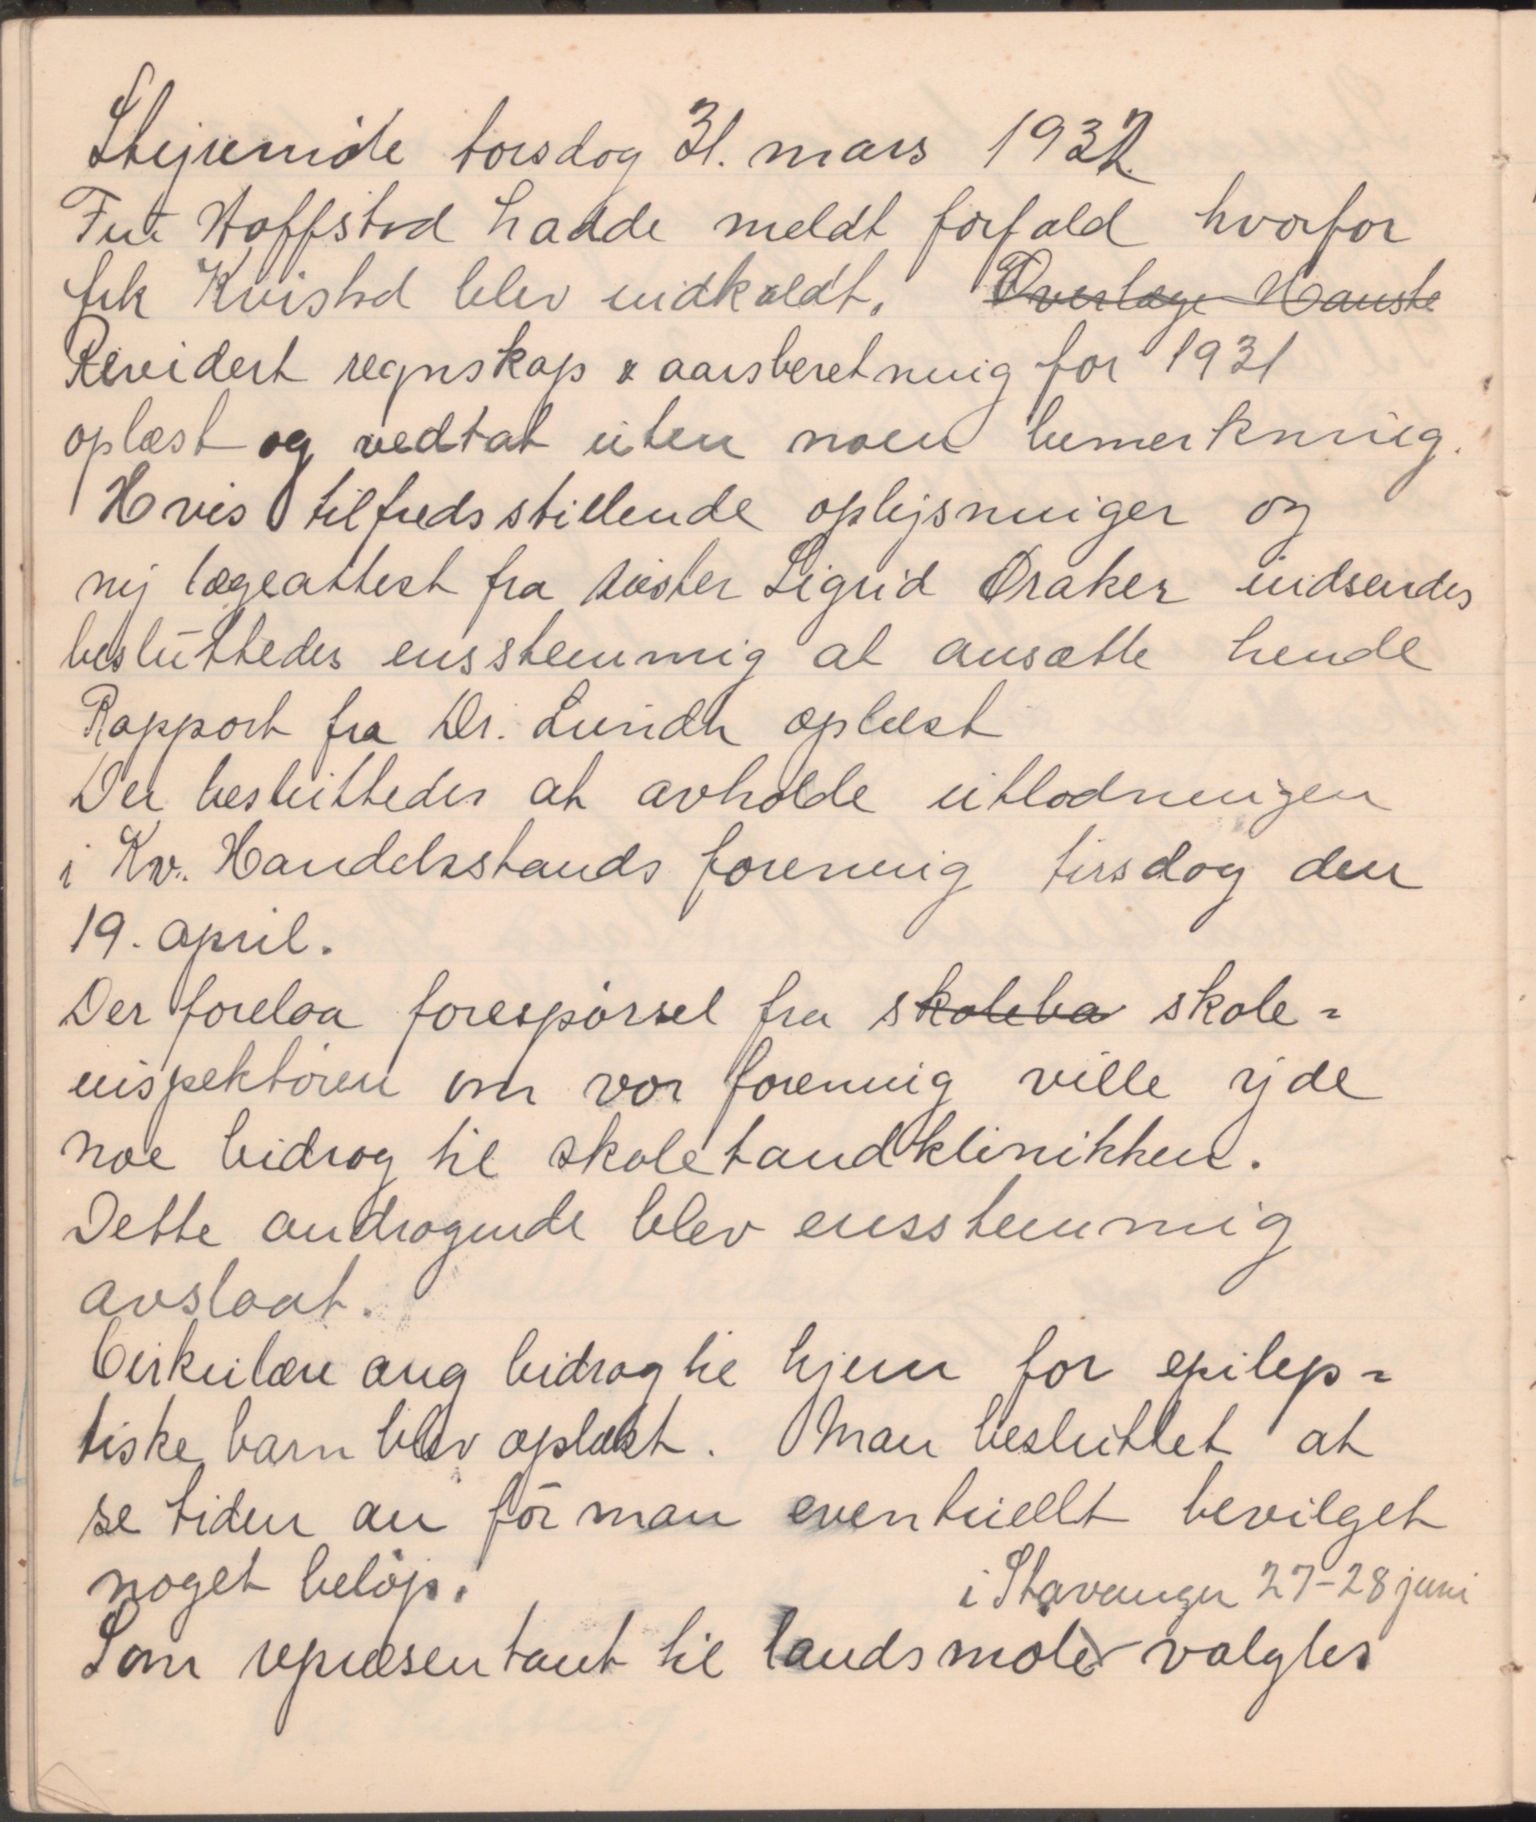 Styremöte torsdag 31. mars 1932.
Fru Hoffstad hadde meldt forfald hvorfor
frk Kvistad blev indkaldt. Overlæge Hauske
Revidert regnskap & aarsberetning for 1931
oplæst og vedtat uten noen bemerkning.
Hvis tilfredsstillende oplysninger og
ny lægeattest fra söster Sigrid Øraker indsendes
besluttedes ensstemmig at ansætte hende
Rapport fra Dr. Lundh oplæst
Der besluttedes at avholde utlodningen
i Kv. Handelsstands forening tirsdag den
19. april.
Der forelaa forespörsel fra skoleba skole=
inspektören om vor forening ville yde
noe bidrag til skoletandklinikken.
Dette andragende blev ensstemmig
avslaat.
Cirkulære ang bidrag til hjem for epilep=
tiske barn blev oplæst. Man besluttet at
se tiden an för man eventuellt bevilget
noget belöp.
i Stavanger 27-28 juni
Som repræsentant til landsmöte valgtes